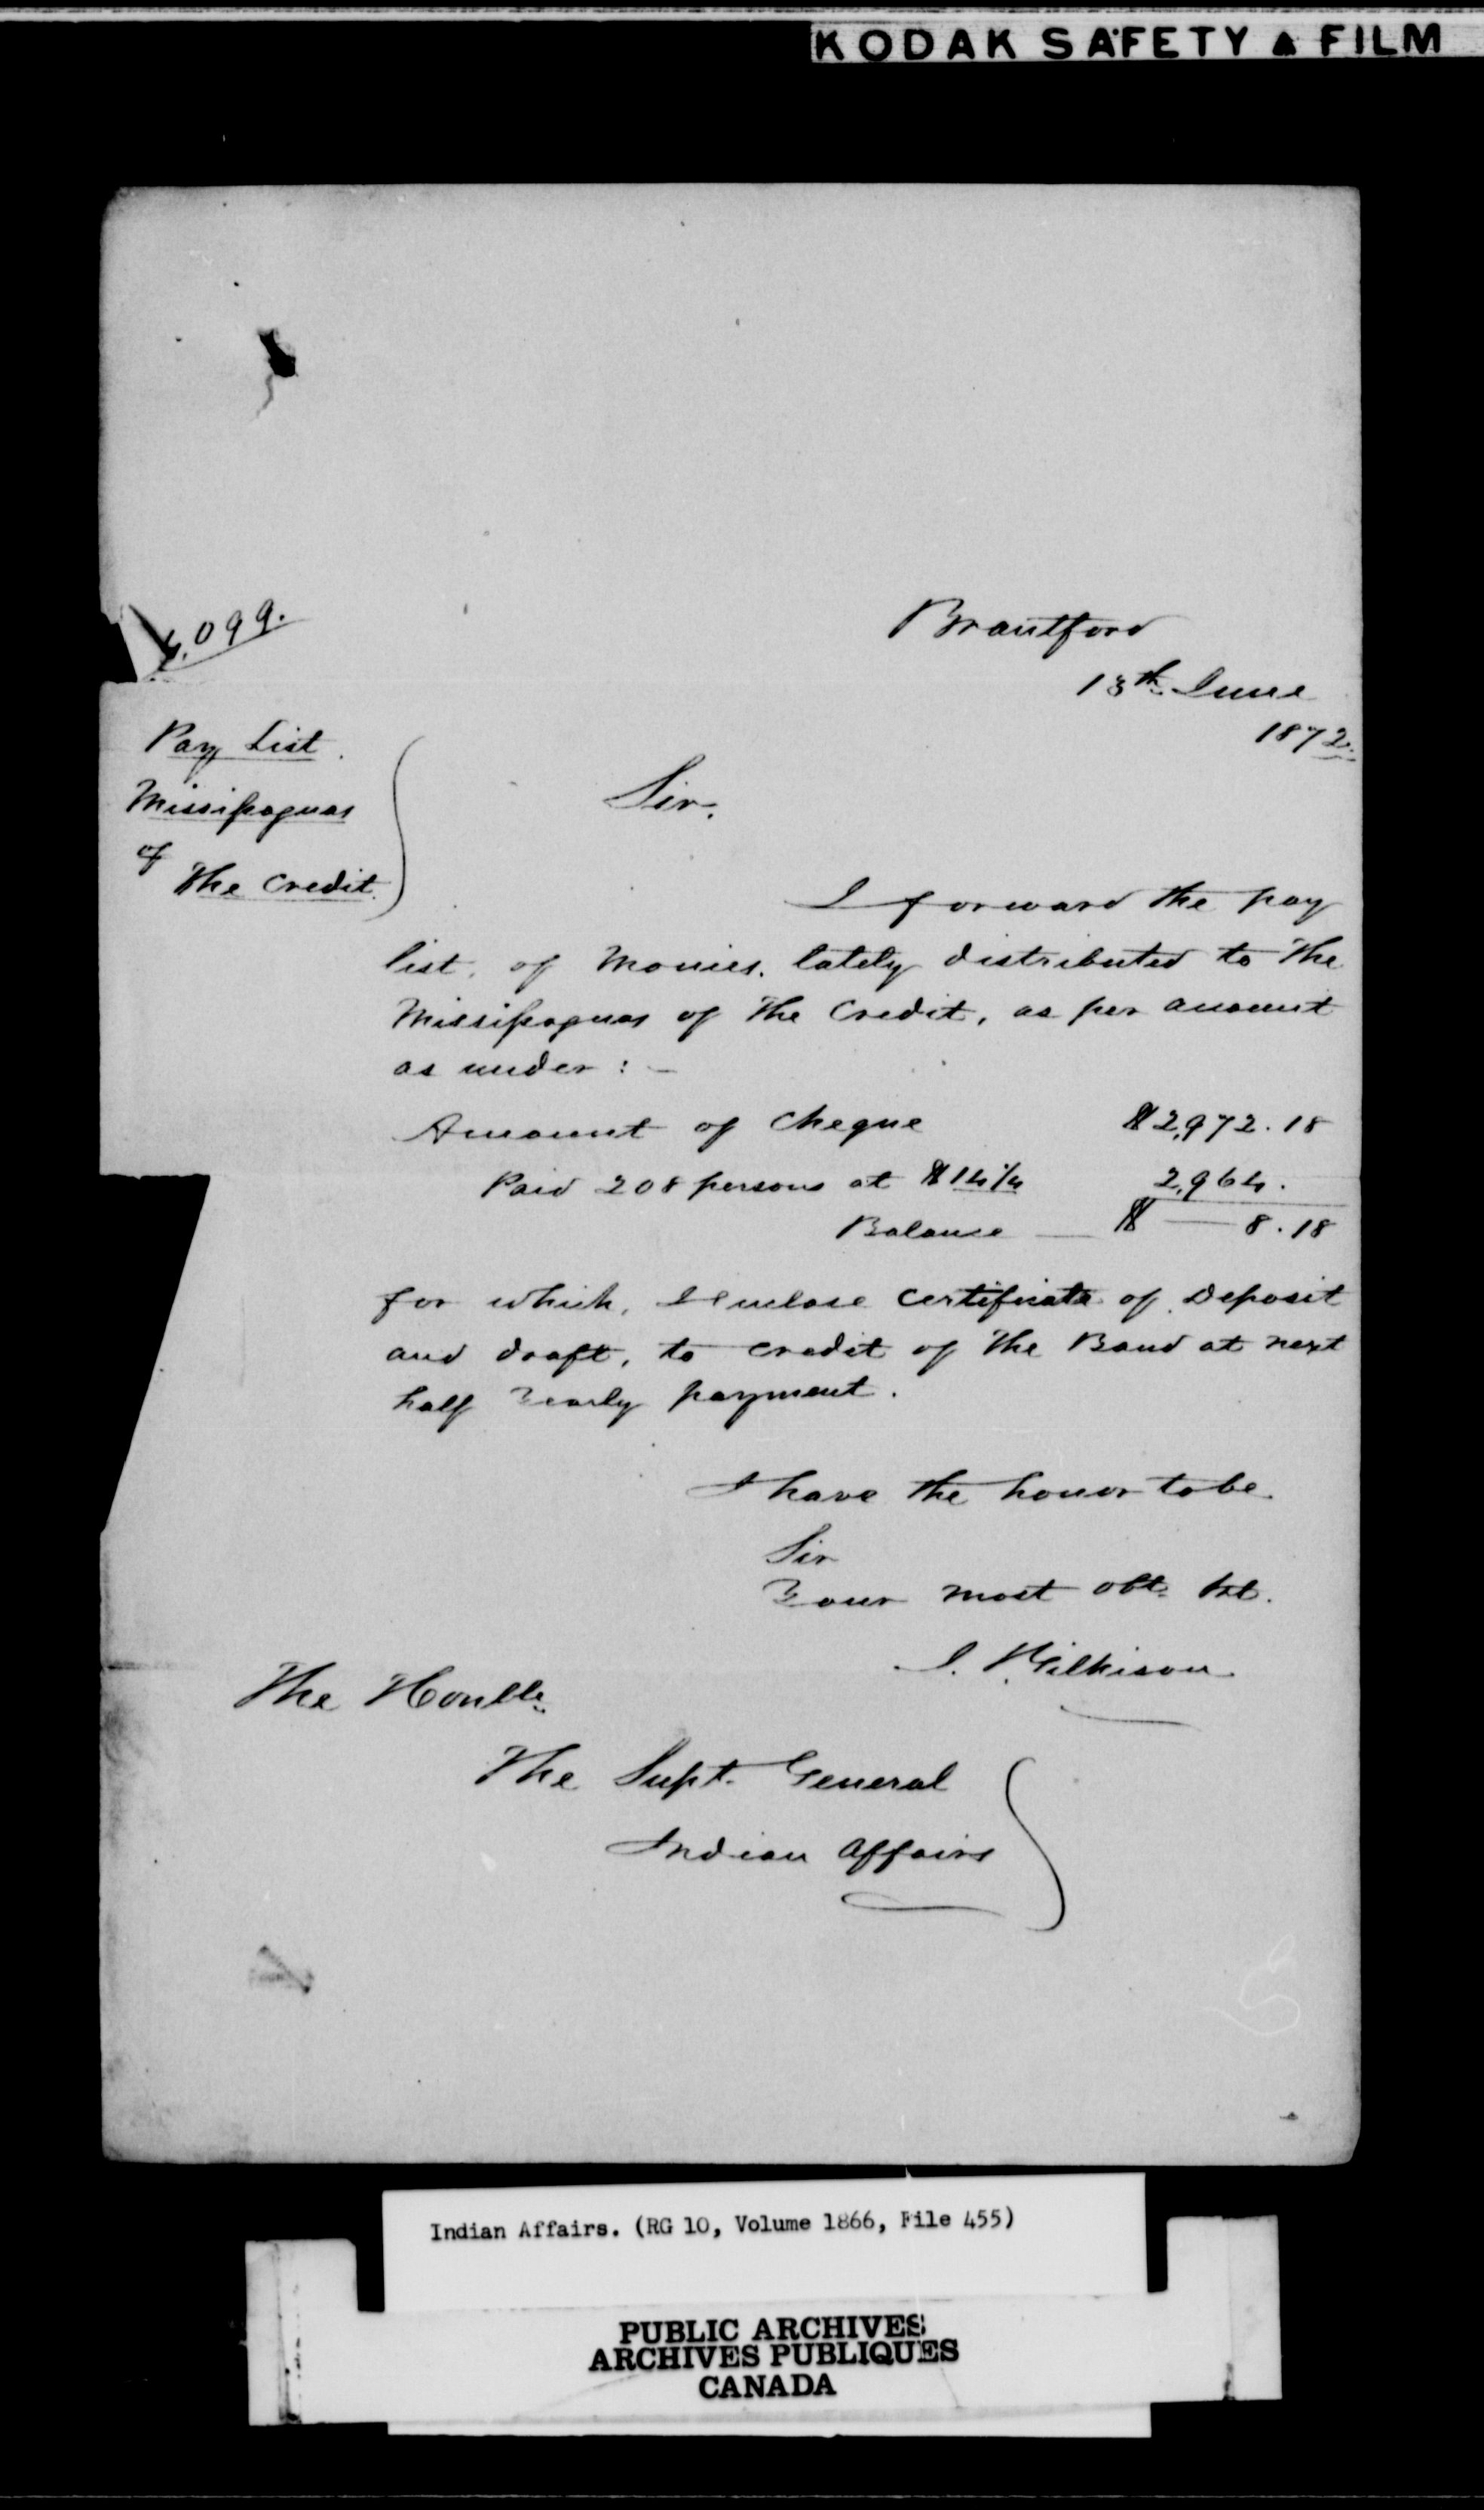 KODAK SAFETY ▲ FILM
4,099.
Brantford
13th June
1872.
Pay List.
Missisaguas
of
The Credit.
Sir,
I forward the pay
list, of monies, lately distributed to the
Missisaguas of the Credit, as per amount
as under : —
Amount of Cheque $2,972.18
Paid 208 persons at $14¼ 2,964.
Balance — $ — 8.18
for which, I enclose certificate of Deposit
and draft, to credit of the Band at next
half Yearly payment.
I have the honor to be
Sir
Your most obt. Svt.
J. Gilkison
The Honble.
The Supt. General
Indian Affairs
Indian Affairs. (RG 10, Volume 1866, File 455)
PUBLIC ARCHIVES
ARCHIVES PUBLIQUES
CANADA